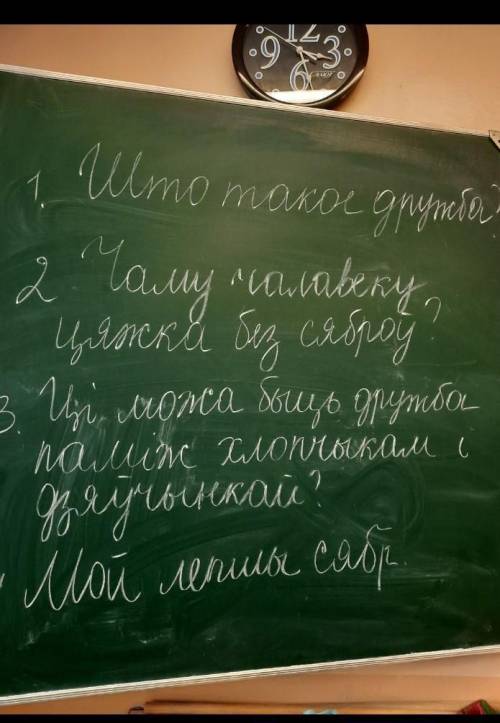 12
9 3
6
1. Што такое дружба?
2 Чаму чалавеку
цяжка без сяброў?
3. Ці можа быць дружба
паміж хлопчыкам і
дзяўчынкай?
Мой лепшы сябр.